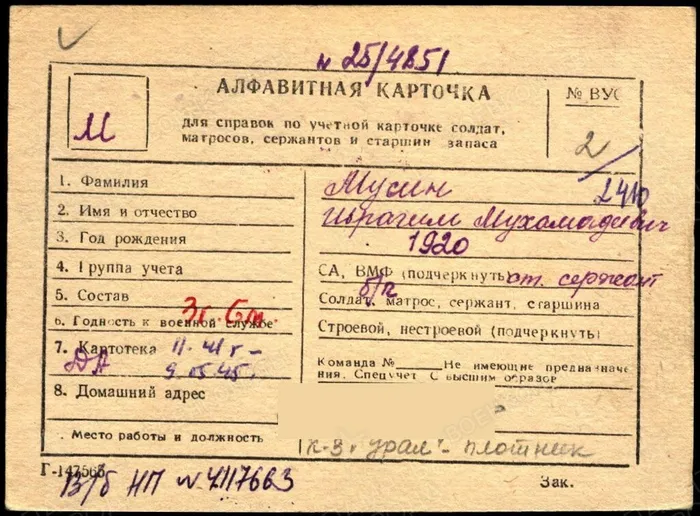 N 25/4851
АЛФАВИТНАЯ КАРТОЧКА
№ ВУС
М
для справок по учетной карточке солдат,
матросов, сержантов и старшин запаса
2/2410
1. Фамилия Мусин
2. Имя и отчество Ибрагим Мухомадеевич
3. Год рождения 1920
4. Группа учета СА, ВМФ (подчеркнуть) ст. сержант
б/п
5. Состав Солдат, матрос, сержант, старшина
3г. 6м.
6. Годность к военной службе Строевой, нестроевой (подчеркнуть)
7. Картотека 11.41г - Команда № Не имеющие предназначе
ДА 9.05.45. ния. Спецучет С высшим образов
8. Домашний адрес
Место работы и должность к-з "Урал" - плотник
Г-147563
В/б НП № 4117663
Зак.